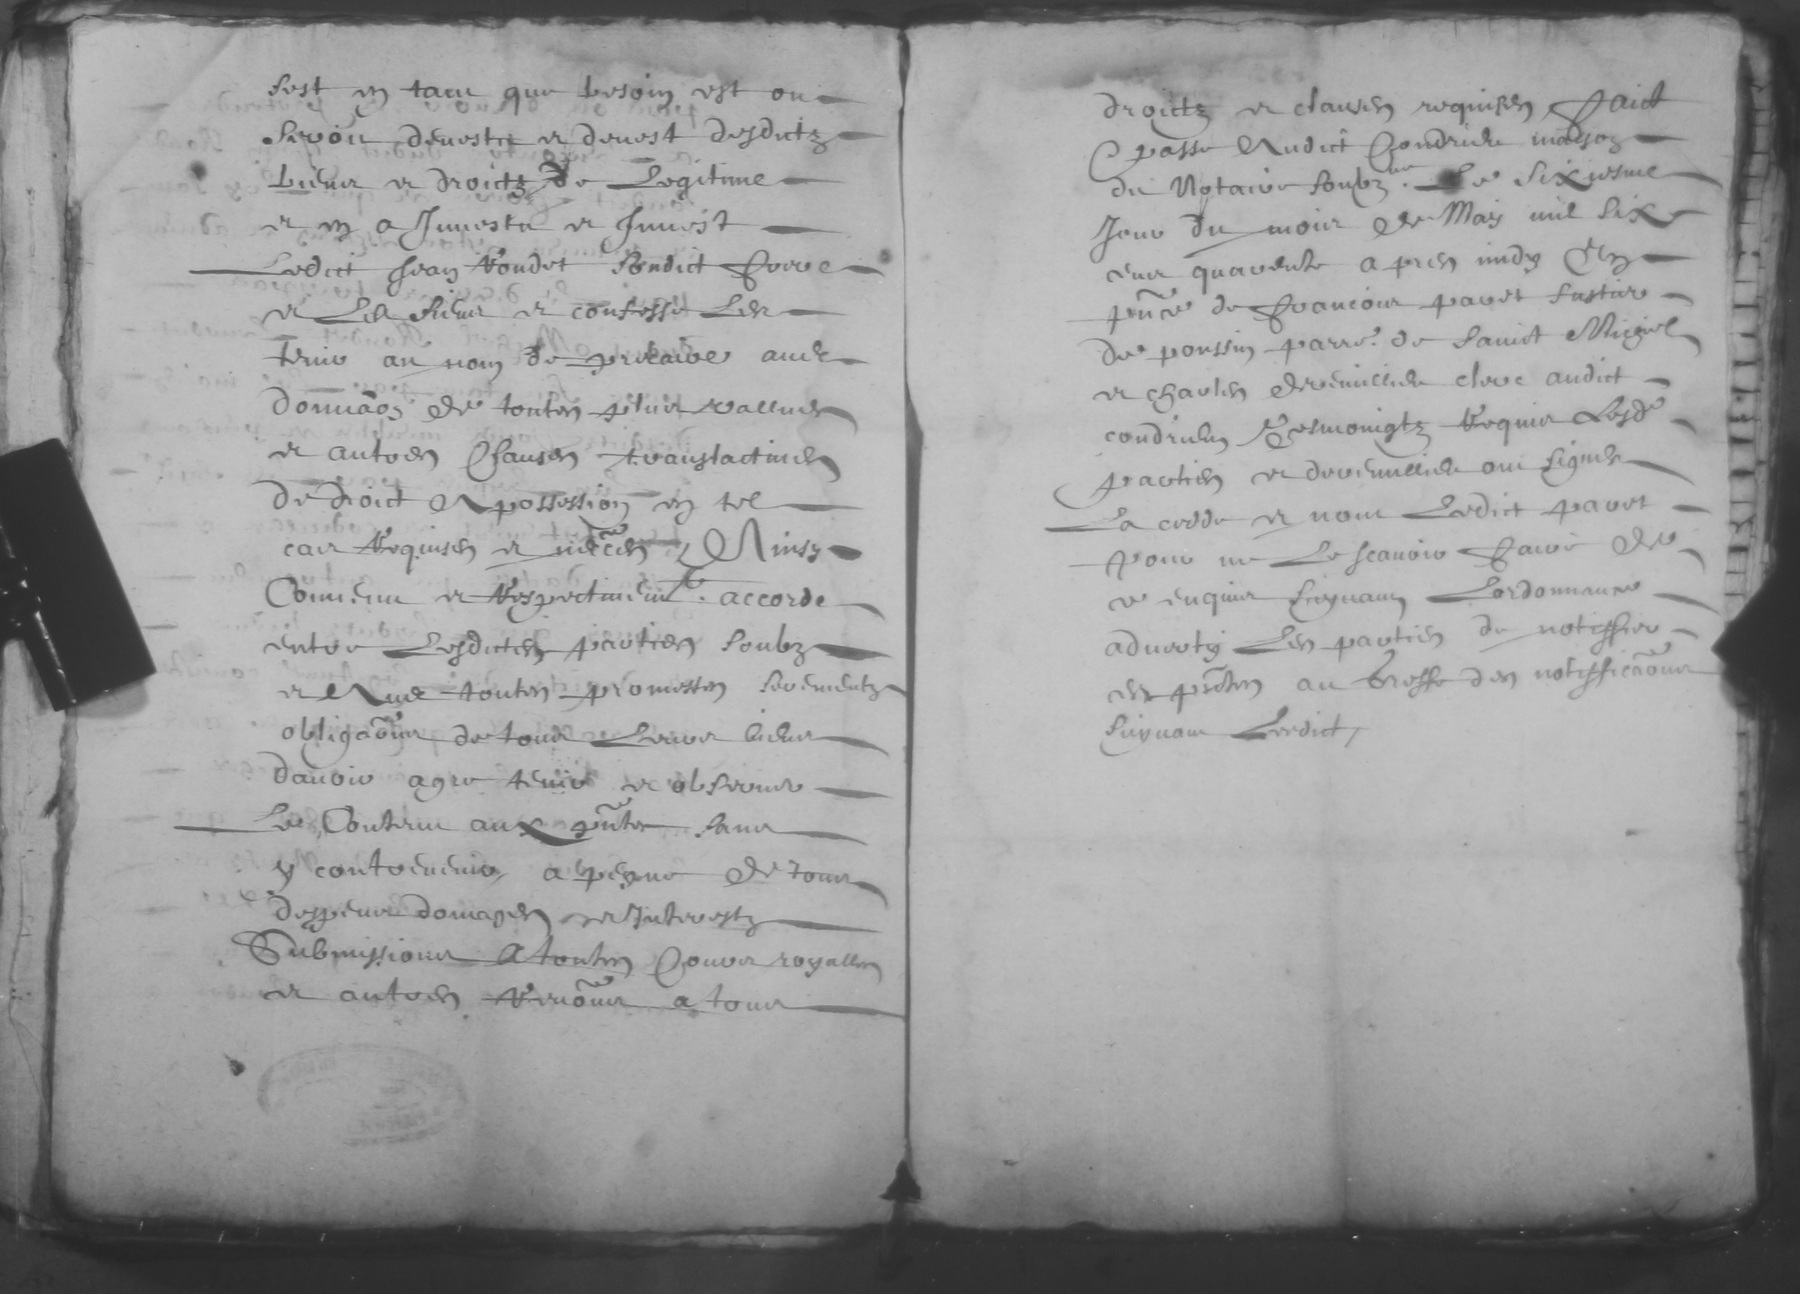 sest en tant que besoin est ou
seroit devestu et devest desdictz
biens et droictz de Legitime
et en a Investu et Invest
Ledict Jean Rondet sondict frere
et Les siens et confesse Les
tenir au nom de precaire avec
donnãon de toutes plus vallues
et autres Clauses translactives
de droict et possession en tel
cas Requises et necẽres Ainsy
Convenu et Respectivem.t accorde
entre Lesdictes parties soubz
et Avec toutes promesses serementz
obligãons de tous Leurs biens
davoir agre tenir et observer
Le Contenu aux pñtes sans
y contrevenir a peyne de tous
despens domages et Interestz
Submissions A toutes Cours royalles
et autres Renõns a tous
droictz et clauses requises Faict
Et passe Audict Condrieu maison
du Notaire soubz.ne Le sixiesme
Jour du mois de May mil six
cens quarente apres midy En
pñce de Francois pavet fustier
de poussin parre. de sainct Miguel
et charles devemillieu clerc audict
condrieu Tesmoingtz Requis Lesd.
parties et devemillieu ont signe
La cedde et non Ledict pavet
pour ne Le scavoir faire de
ce enquis suyvant Lordonnance
adverty Les parties de notiffier
les pñtes au Greffe des notifficãons
suyvant Leedict /